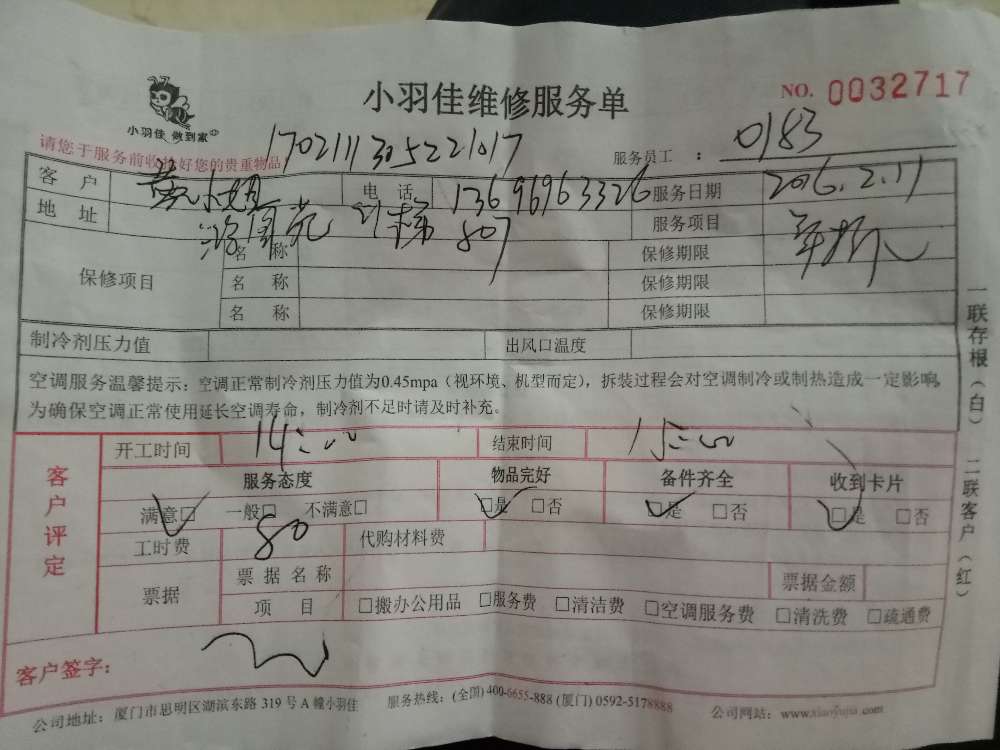 小羽佳维修服务单
NO. 0032717
小羽佳 做到家
请您于服务前收拾好您的贵重物品!
1702111305221017
服务员工 : 0183
客户 小姐 电话 13696963326 服务日期 2016.2.11
地址 807 服务项目
保修项目 名称 保修期限
名称 保修期限
名称 保修期限
制冷剂压力值 出风口温度
空调服务温馨提示:空调正常制冷剂压力值为0.45mpa(视环境、机型而定),拆装过程会对空调制冷或制热造成一定影响,
为确保空调正常使用延长空调寿命,制冷剂不足时请及时补充。
客户评定
开工时间 14:00 结束时间 15:00
服务态度 物品完好 备件齐全 收到卡片
满意□ 一般□ 不满意□ □是 □否 □是 □否 □是 □否
工时费 80 代购材料费
票据 票据名称 票据金额
项目 □搬办公用品 □服务费 □清洁费 □空调服务费 □清洗费 □疏通费
客户签字:
公司地址:厦门市思明区湖滨东路319号A幢小羽佳 服务热线:(全国) 400-6655-888 (厦门) 0592-5178888 公司网站:www.xiaoyujia.com
一联存根(白) 二联客户(红)